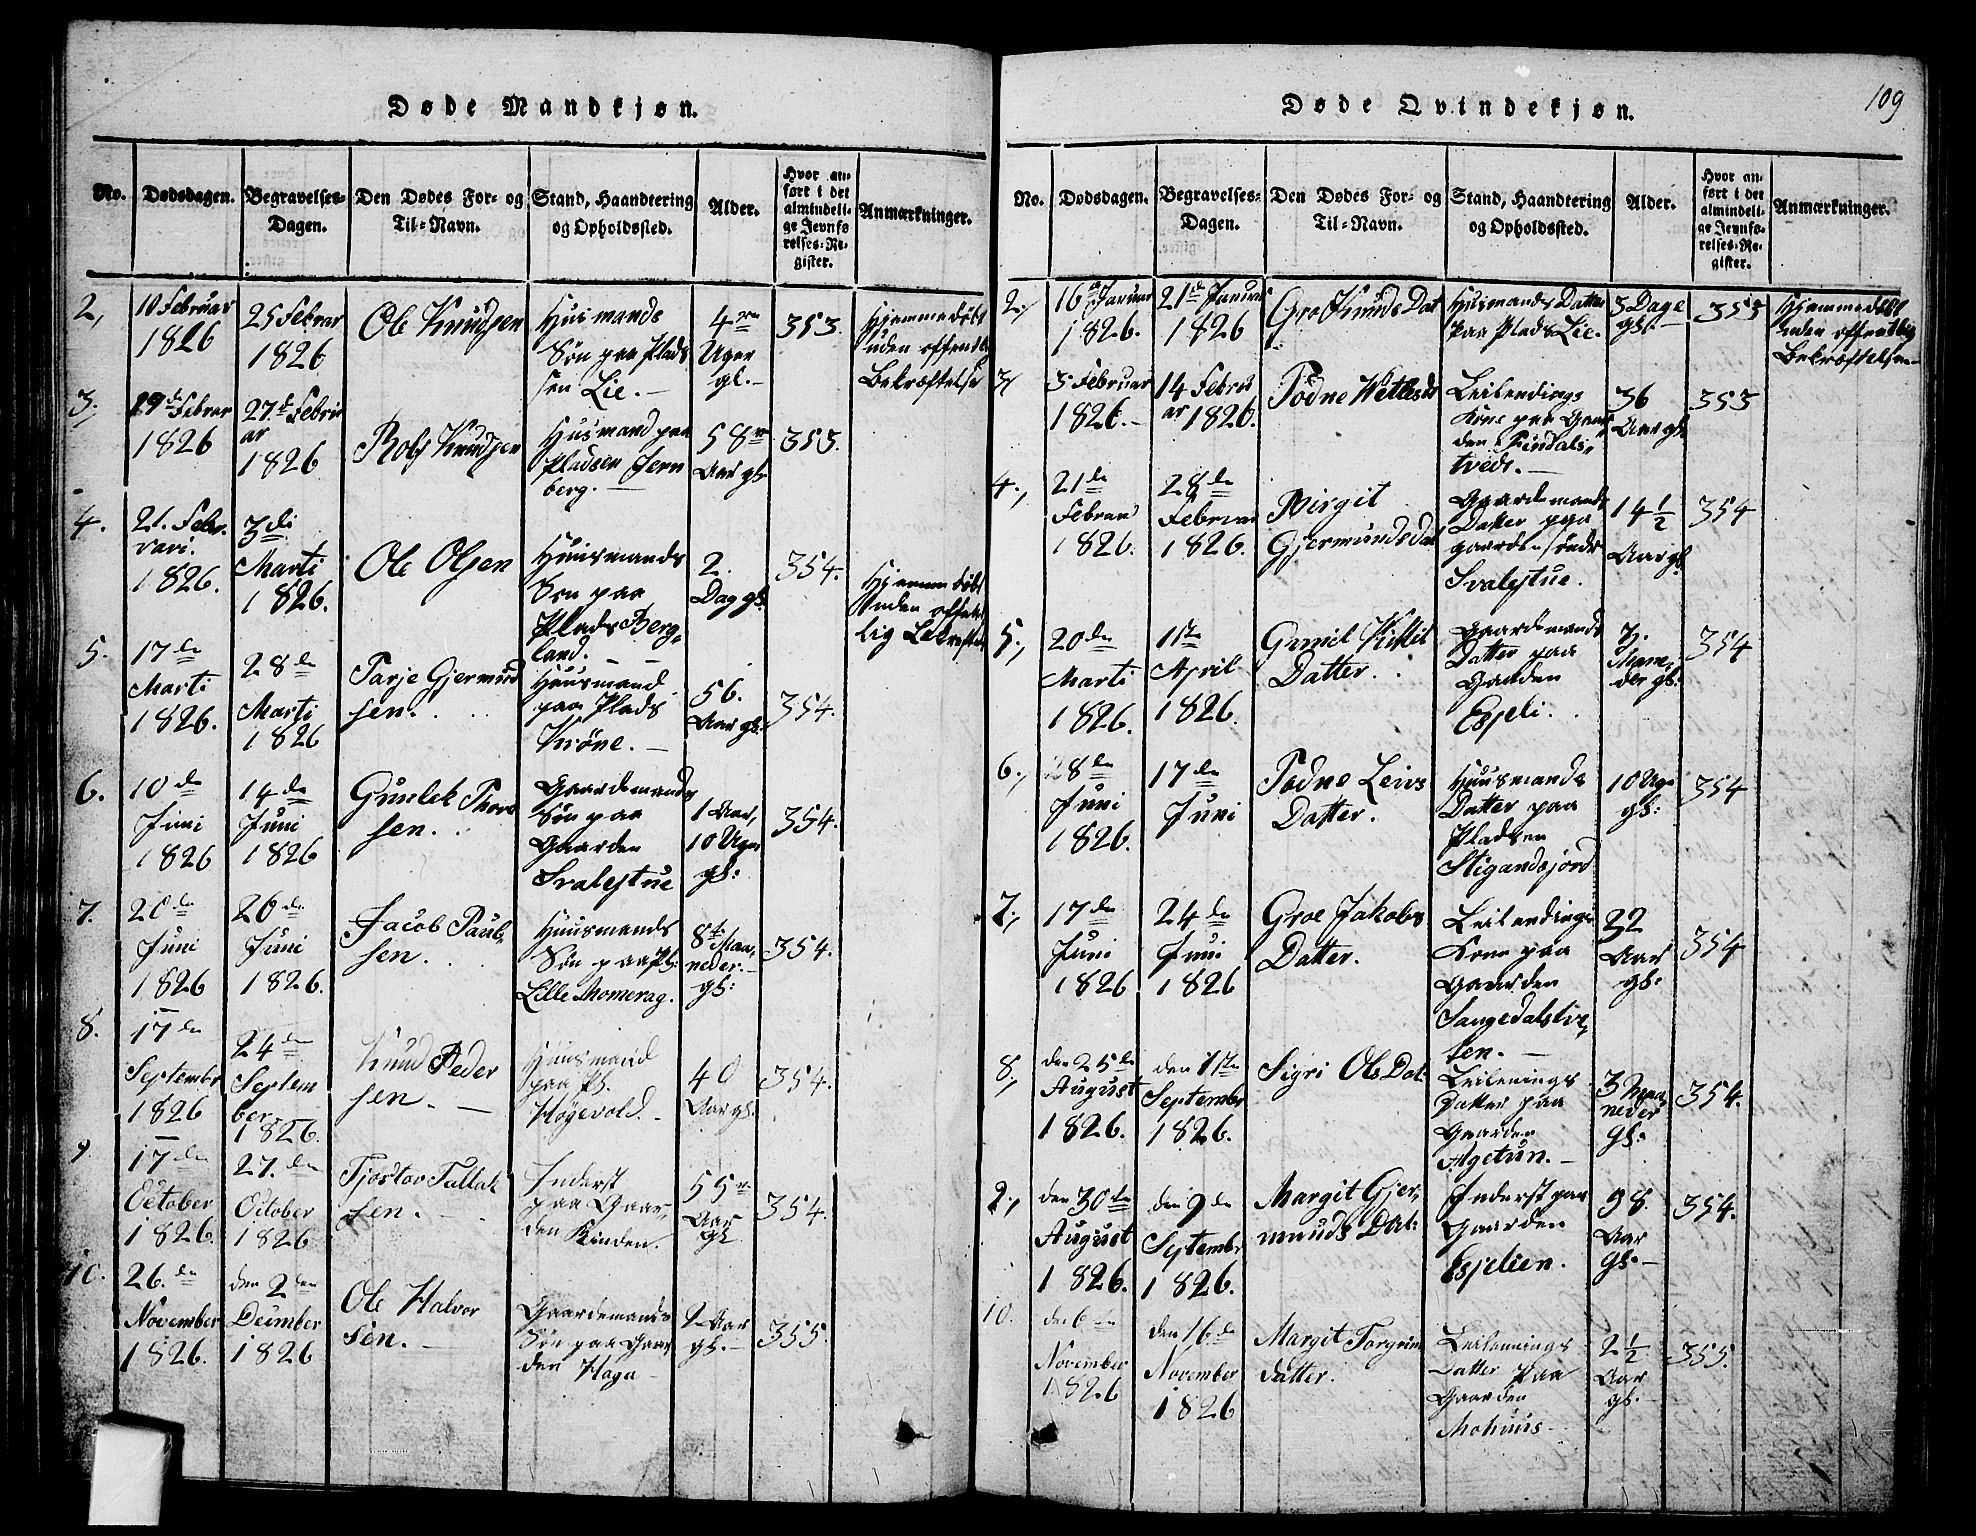 Døde Mandkjøn.
No. Dødsdagen. Begravelses-Dagen. Den Dødes For- og Til-Navn. Stand, Haandtering og Opholdssted. Alder. Hvor anført i det almindelige Jevnførelses-Register. Anmærkninger.
2, 10 Februar 1826 25 Februar 1826 Ole Knudsen Huusmands Søn paa Pladsen Lie. 4re Uger gl. 353. Hjemmedøbt uden offentlig Bekræftelse
3, 1826 27de Februar 1826 Knudsen Husmand paa Pladsen berg. 58 Aar gl. 353.
4. 21. Februari. 1826. 3di Marti 1826. Ole Olsen Huusmands Søn paa Plads Bergland. 2. Dag gl. 354. Hjemmedøbt uden offentlig Bekræftelse
5. 17de Marti 1826. 28de Marti 1826 Tarje Gjermundsen. Huusmand paa Plads Krøne. 56. Aar gl. 354.
6. 10de Juni 1826 14de Juni 1826 Gunlek Thorsen. Gaardemands Søn paa Gaarden Svalestue 1 Aar, 10 Uger gl: 354.
7. 20de Juni 1826 26de Juni 1826. Jacob Paulsen. Huusmands Søn paa Pl: Lille Momerag. 8te Maaneder gl: 354.
8. 17de September 1826 24de September 1826. Knud Pedersen. Huusmand paa Pl. Høgevold. 40 Aar gl. 354.
9 17de October 1826. 27.de October 1826 Tjostov Tallaksen. Inderst paa Gaarden Kinden. 55 Aar gl 354.
10. 26.de November 1826. den 2den December 1826 Ole Halvorsen. Gaardemands Søn paa Gaarden Haga 2 Aar gl. 355.
Døde Qvindekjøn.
109
No. Dødsdagen. Begravelses-Dagen. Den Dødes For- og Til-Navn. Stand, Haandtering og Opholdssted. Alder. Hvor anført i det almindelige Jevnførelses-Register. Anmærkninger.
2, 16 Januar 1826. 21de Januar 1826 Gro Knuds Dat Husmands Datter paa Plads Lie. 3 Dage gl. 353 Hjemmedøbt uden offentlig Bekræftelse
3, 3 Februar 1826. 14 Februar 1826. Tødne Leilendings Kone paa Gaarden Findalstveds. 36 Aar gl. 353
4, 21de Februar 1826. 28de Februar 1826. Birgit Gjermunds dat Gaardemands Datter paa gaarden Svalestue. 14 1/2 Aar gl. 354
5, 20de Marti 1826. 1ste April 1826. Datter. Gaardemands Datter paa Gaarden Espeli. Maaneder gl: 354
6, 8de Juni 1826. 17de Juni Tødne Leivs Datter. Huusmands Datter paa Pladsen Stigandsjord 10 Uger gl: 354
7, 17de Juni 1826 24de Juni 1826 Groe Jakobs Datter. Leilendings Kone paa Gaarden 32 Aar gl: 354
8, den 25de August 1826. den 1ste September 1826. Sigri Ols Dat. Leilenings Datter paa Gaarden Algetun. 3 Maaneder gl: 354.
9, den 30de August 1826. den 9de September 1826. Margit Gjermunds Dat: Inderst paa Gaarden Espelien. 98. Aar gl. 354.
10. den 6te November 1826 den 16de November 1826 Margit Torgrim datter. Leilennings Datter paa Gaarden Mohuus 2 1/2 Aar gl. 355.